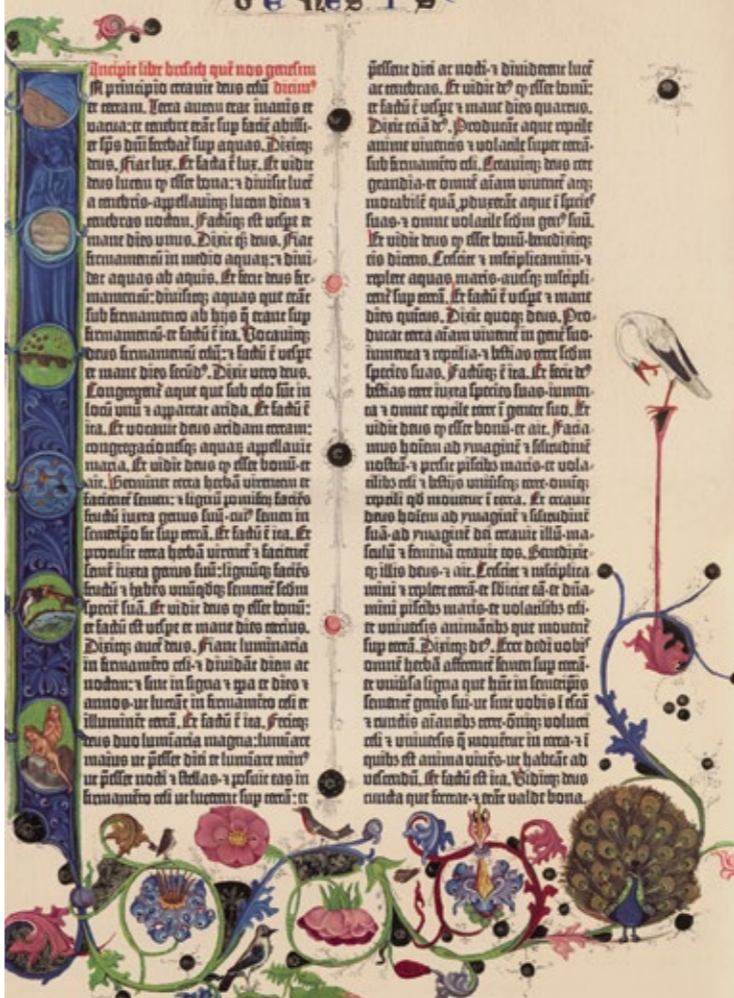 Genesis
Incipit liber bresith quē nos genesim
In principio creavit deus celū dicimus
et terram. Terra autem erat inanis et
vacua: et tenebre erāt sup faciē abissi:
et sp̄s dn̄i ferebat᷑ sup aquas. Dixitq;
deus. Fiat lux. Et facta ē lux. Et vidit
deus lucem q̇ esset bona: ⁊ divisit lucē
a tenebris· appellavitq; lucem diem ⁊
tenebras noctem. Factūq; est vespe et
mane dies unus. Dixit q̄ꝫ deus. Fiat
firmamentū in medio aquaꝝ: ⁊ divi-
dat aquas ab aquis. Et fecit deus fir-
mamentū: divisitq; aquas que erāt
sub firmamento ab hijs q̄ erant sup
firmamentū· et factū ē ita. Vocavitq;
deus firmamentū celū: ⁊ factū ē vespe
et mane dies secūd⁹. Dixit vero deus.
Congregent᷑ aque que sub celo sūt in
locū unū ⁊ appareat arida. Et factū ē
ita. Et vocavit deus aridam terram:
congregacionesq; aquaꝝ appellavit
maria. Et vidit deus q̇ esset bonū· et
ait. Germinet terra herbā virentem et
facientē semen: ⁊ lignū pomifeꝝ faciēs
fructū iuxta genus suū· cui⁹ semen in
semetip̄o sit sup terrā. Et factū ē ita. Et
protulit terra herbā virentē ⁊ facientē
semē iuxta genus suū: lignūq; faciēs
fructū ⁊ habēs unūqdq; sementē scd̄m
speciē suā. Et vidit deus q̇ esset bonū:
et factū est vespe et mane dies tercius.
Dixitq; aut̄ deus. Fiant luminaria
in firmamēto celi· ⁊ dividāt diem ac
noctem: ⁊ sint in signa ⁊ tp̄a et dies ⁊
annos· ut luceāt in firmamēto celi et
illuminēt terrā. Et factū ē ita. Fecitq;
deus duo lumīaria magna: lumīare
maius ut p̄esset diei et lumīare min⁹
ut p̄esset nocti ⁊ stellas· ⁊ posuit eas in
firmamēto celi ut lucerent sup terrā: et
p̄essent diei ac nocti· ⁊ dividerent lucē
ac tenebras. Et vidit de⁹ q̇ esset bonū:
et factū ē vespe ⁊ mane dies quartus.
Dixit eciā de⁹. Producāt aque reptile
anime viventis ⁊ volatile super terrā·
sub firmamēto celi. Creavitq; deus cete
grandia· et omnē aīam viventē atq;
motabilē quā pduxerāt aque ī species
suas· ⁊ omne volatile scd̄m gen⁹ suū.
Et vidit deus q̇ esset bonū· benedixitq;
eis dicens. Crescite ⁊ mlt̄iplicamini· ⁊
replete aquas maris· avesq; mlt̄ipli-
cent᷑ sup terrā. Et factū ē vespe ⁊ mane
dies quintus. Dixit quoq; deus. Pro-
ducat terra aīam viventē in gene̅ suo·
iumenta ⁊ reptilia· ⁊ bestias terre scd̄m
species suas. Factūq; ē ita. Et fecit de⁹
bestias terre iuxta species suas· iumen-
ta ⁊ omne reptile terre ī genere suo. Et
vidit deus q̇ esset bonū· et ait. Facia-
mus hoīem ad ymaginē ⁊ silitudinē
nostrā· ⁊ presit piscib; maris· et vola-
tilib; celi ⁊ bestijs univ̄seq; terre· omiq;
reptili qd̄ movetur ī terra. Et creavit
deus hoīem ad ymaginē ⁊ silitudinē
suā· ad ymaginē dei creavit illū· ma-
sculū ⁊ feminā creavit eos. Benedixit-
q; illis deus· ⁊ ait. Crescite ⁊ mlt̄iplica-
mini ⁊ replete terrā· et s̄bicite eā· et dn̄a-
mini piscib; maris· et volatilib; celi·
et universis animātib; que movent᷑
sup terrā. Dixitq; de⁹. Ecce dedi vobis
omnē herbā afferentē semen sup terrā·
et univ̄sa ligna que hn̄t in semetip̄is
sementē genēis sui· ut sint vobis ī escā
⁊ cunctis aīantib; terre· oīq; volucri
celi ⁊ universis q̄ movētur in terra· ⁊ ī
quib; est anima vivēs· ut habeāt ad
vescendū. Et factū est ita. Viditq; deus
cuncta que fecerat· ⁊ erāt valde bona.